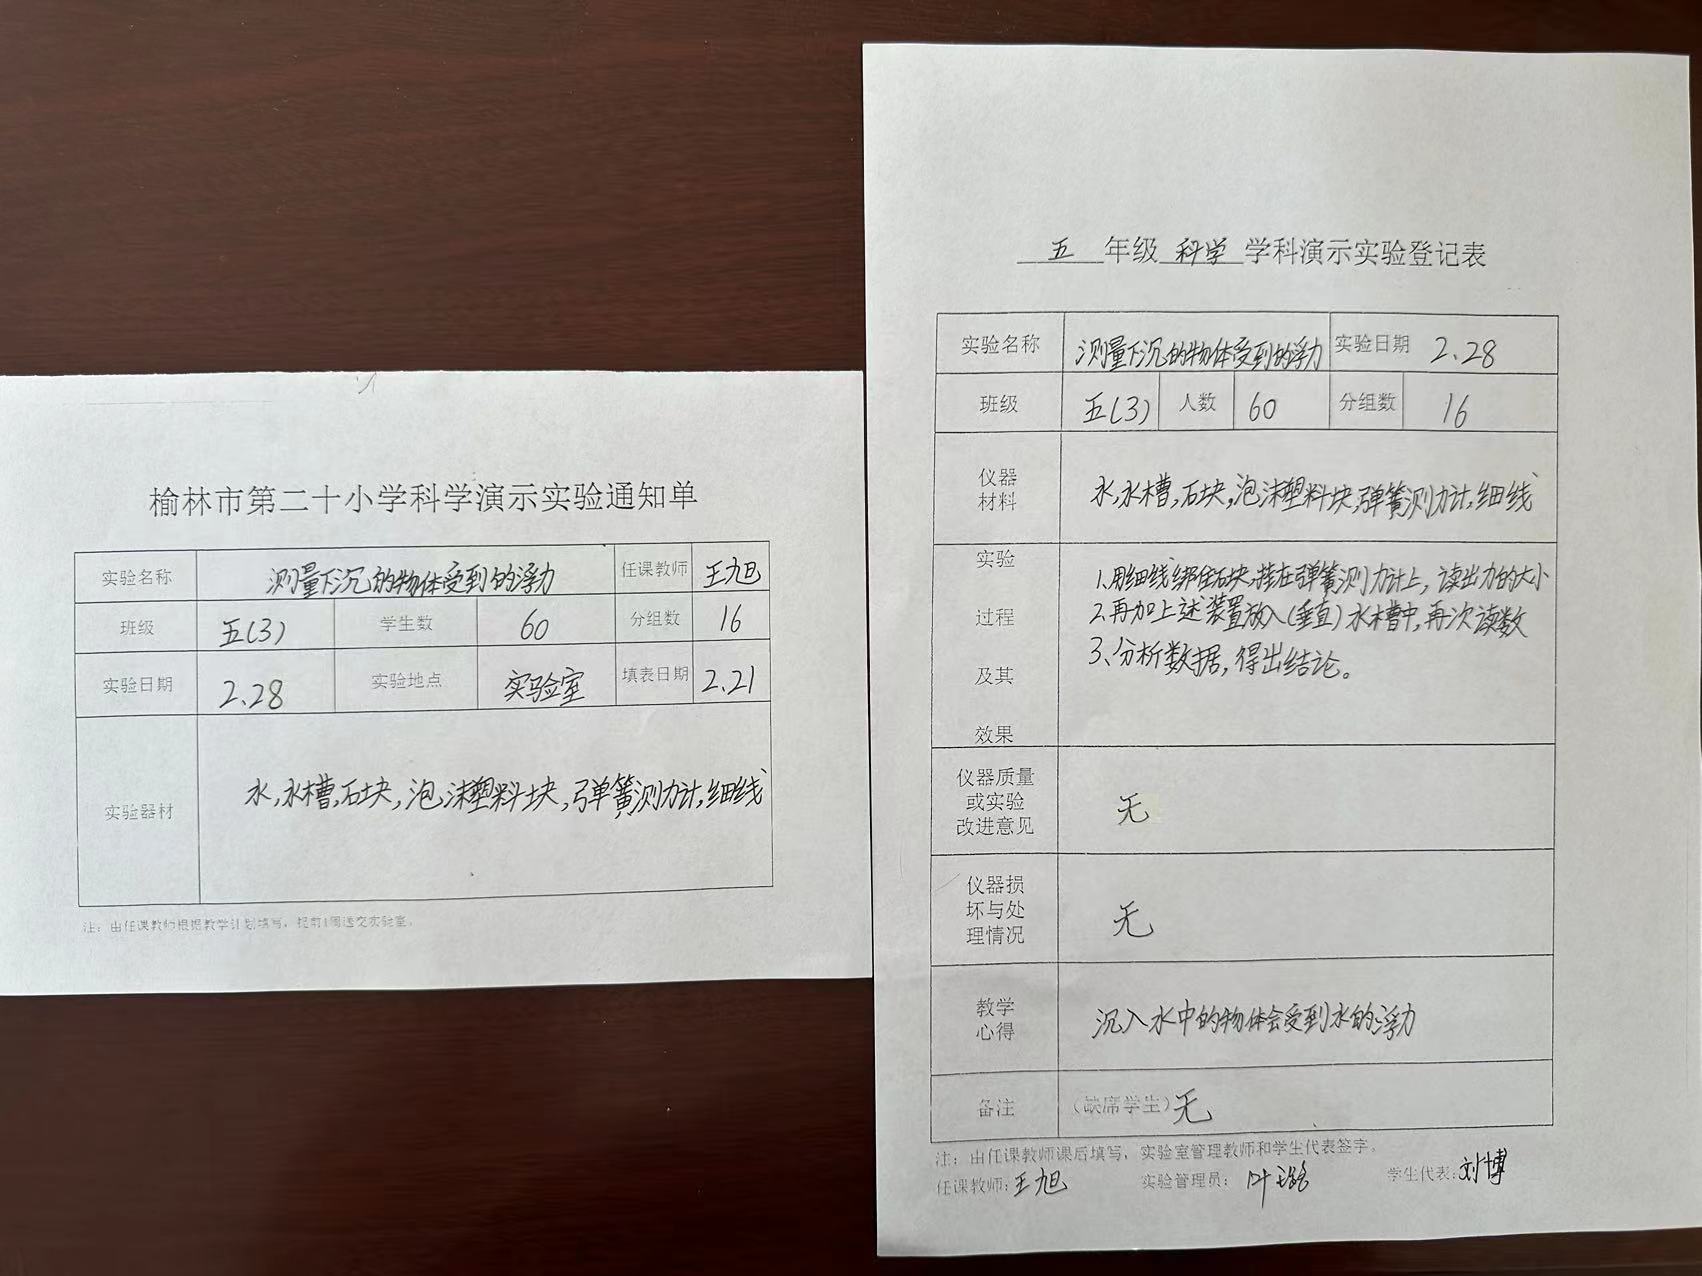 榆林市第二十小学科学演示实验通知单
实验名称 测量下沉的物体受到的浮力 任课教师 王旭
班级 五(3) 学生数 60 分组数 16
实验日期 2.28 实验地点 实验室 填表日期 2.21
实验器材 水,水槽,石块,泡沫塑料块,弹簧测力计,细线
注：由任课教师根据教学计划填写，提前1周送交实验室。
五 年级 科学 学科演示实验登记表
实验名称 测量下沉的物体受到的浮力 实验日期 2.28
班级 五(3) 人数 60 分组数 16
仪器
材料
水,水槽,石块,泡沫塑料块,弹簧测力计,细线
实验
过程
及其
效果
1.用细线绑住石块,挂在弹簧测力计上,读出力的大小
2.再加上述装置放入(垂直)水槽中,再次读数
3、分析数据,得出结论。
仪器质量
或实验
改进意见
无
仪器损
坏与处
理情况
无
教学
心得
沉入水中的物体会受到水的浮力
备注 （缺席学生）无
注：由任课教师课后填写，实验室管理教师和学生代表签字。
任课教师:王旭 实验管理员: 叶璐 学生代表:刘博